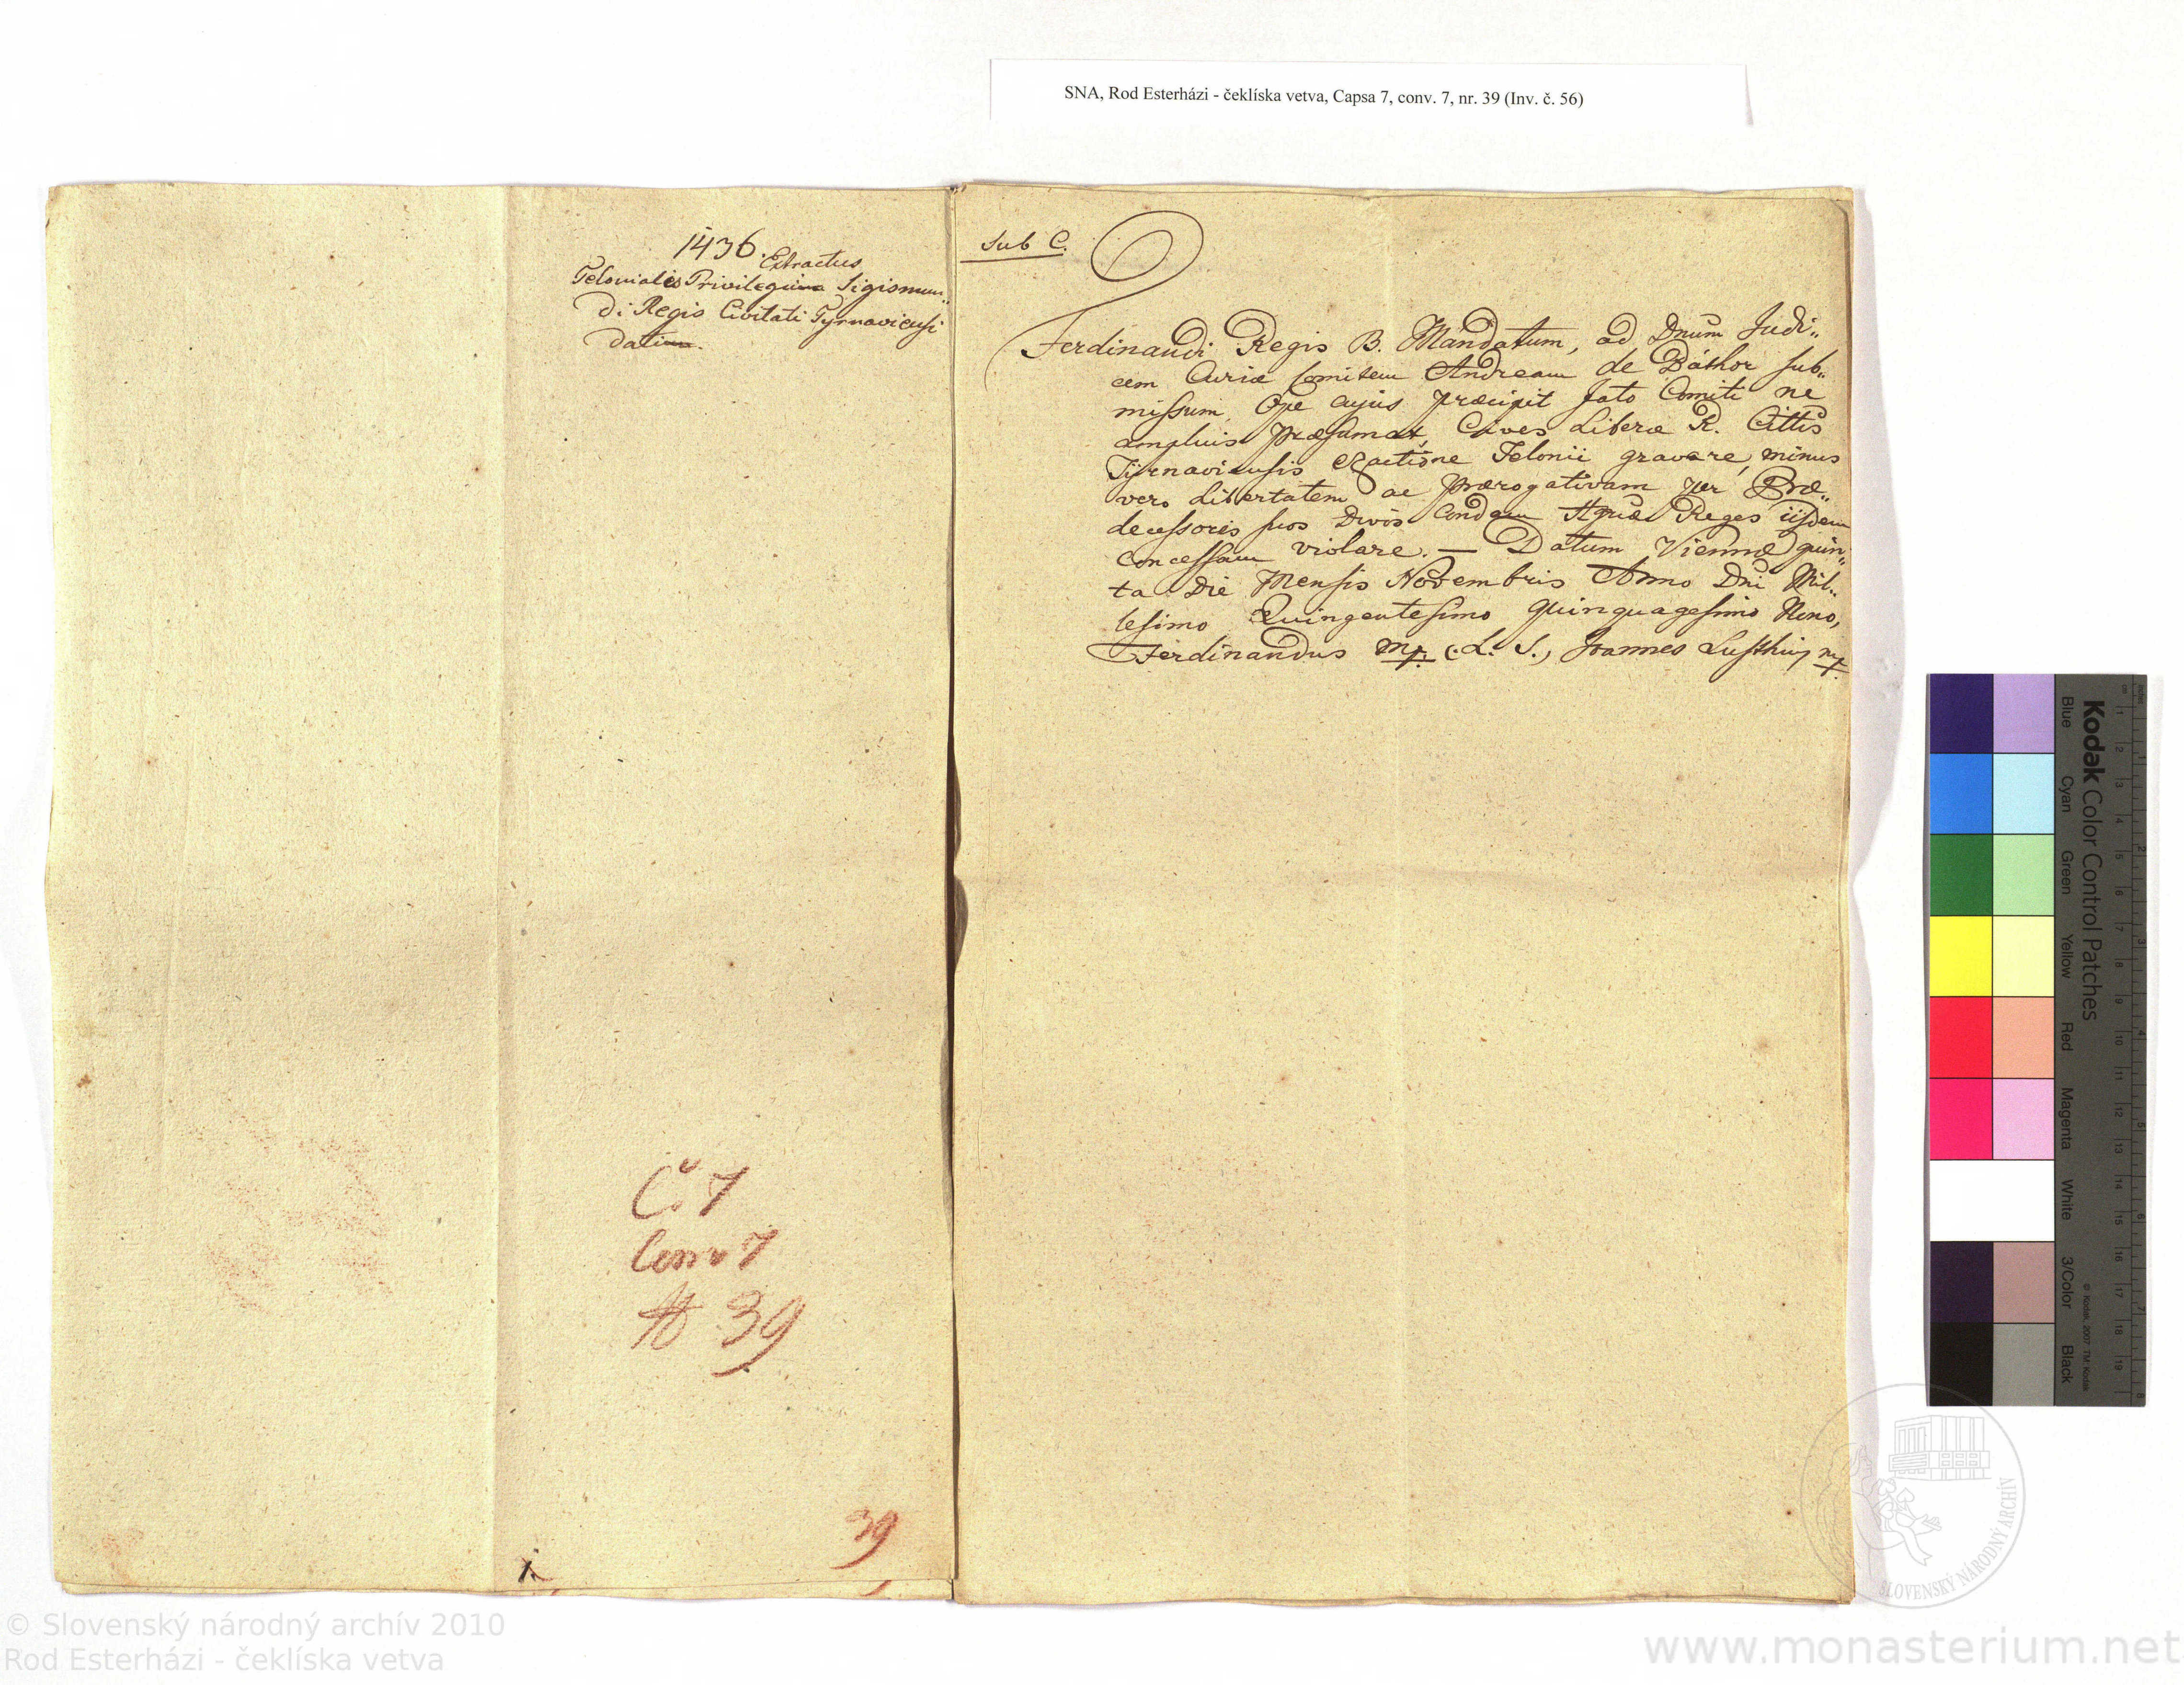 SNA, Rod Esterházi - čeklíska vetva, Capsa 7, conv. 7, nr. 39 (Inv. č. 56)
1436. Extractus
Telonialis Privilegii Sigismun„
di Regis Civitati Tyrnaviensi
dati.
C. 7
Conv 7
N 39
39
1.
Sub C.
Ferdinandi Regis B. Mandatum, ad Dnum Judi„
cem Curiæ Comitem Andream de Báthor sub„
missum, Ope cujus præcipit fato Comiti ne
ampluis præsumat, Cives Liberæ R. Cittis
Tÿrnaviensis exactione Telonii gravare, minus
vero Libertatem ac prærogativam per Præ„
decessores suos Divos Condam Hgriæ Reges iisdem
concessam violare. — Datum Viennæ quin„
ta Die Mensis Novembris Anno Dni Mil„
lesimo Quingentesimo quinquagesimo Nono,
Ferdinandus mp. (: L. S. ) Joannes Lusthiy mp.
Kodak Color Control Patches
Blue Cyan Green Yellow Red Magenta White 3/Color Black
© Kodak, 2007 TM: Kodak
SLOVENSKÝ NÁRODNÝ ARCHÍV
© Slovenský národný archív 2010
Rod Esterházi - čeklíska vetva
www.monasterium.net